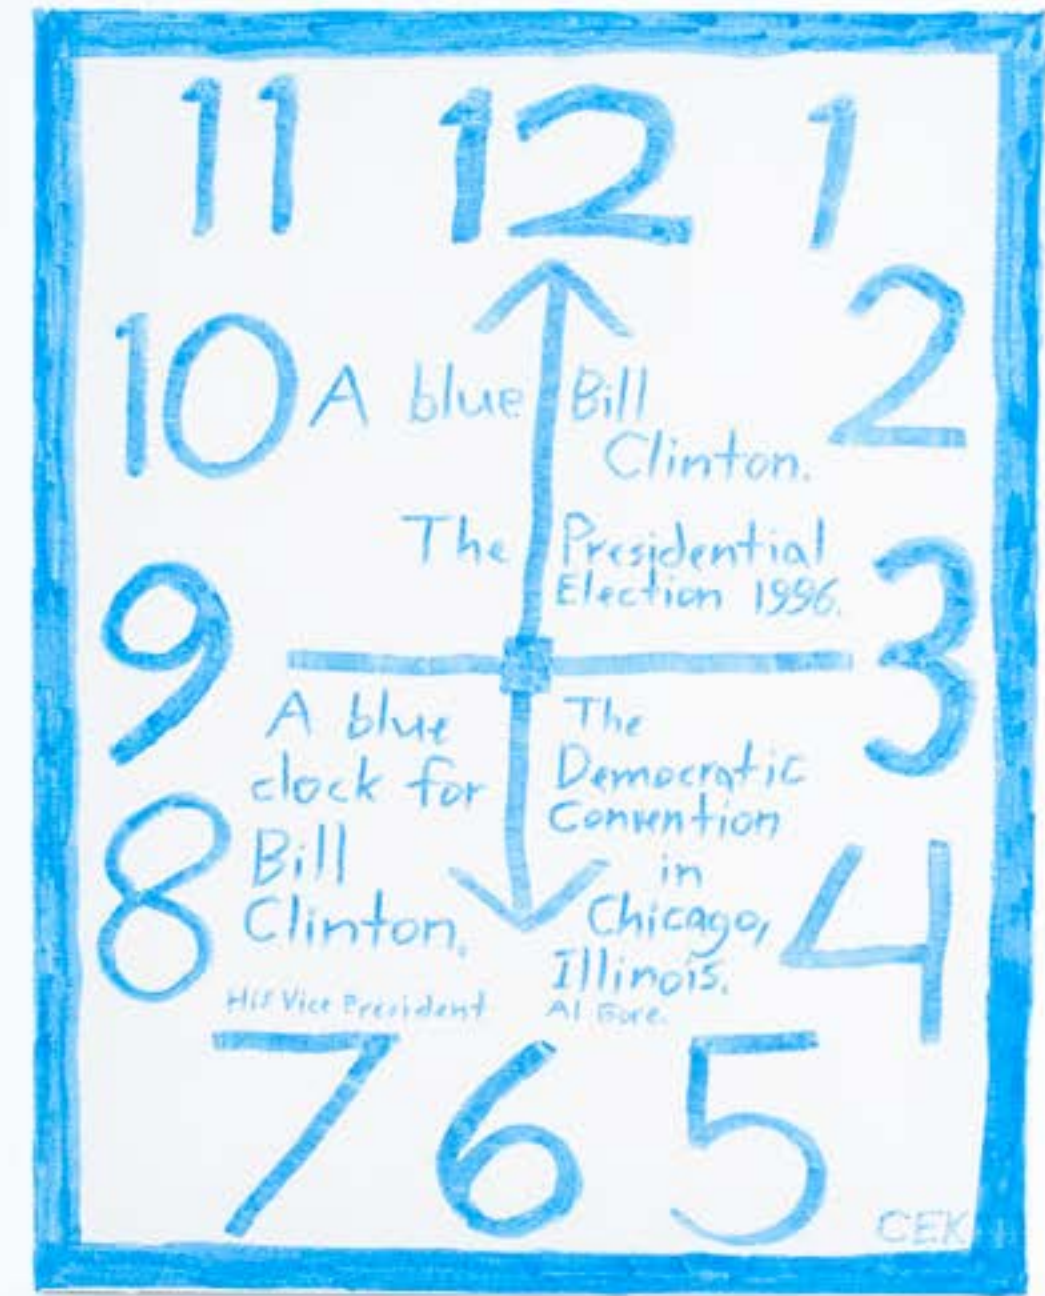 11 12 1
10 2
A blue Bill
Clinton.
The Presidential
Election 1996.
9 3
A blue
clock for
Bill
Clinton.
The
Democratic
Convention
in
Chicago,
Illinois.
8 4
His Vice President Al Gore.
7 6 5
CEK